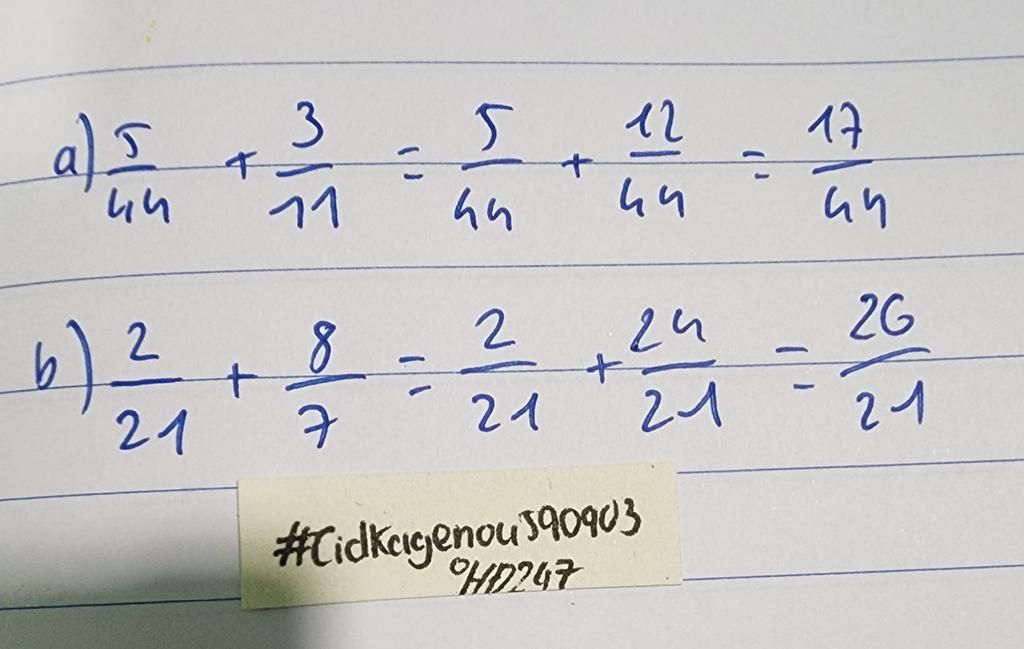 a) 5/44 + 3/11 = 5/44 + 12/44 = 17/44
b) 2/21 + 8/7 = 2/21 + 24/21 = 26/21
#CidKagenou590903
°HD247